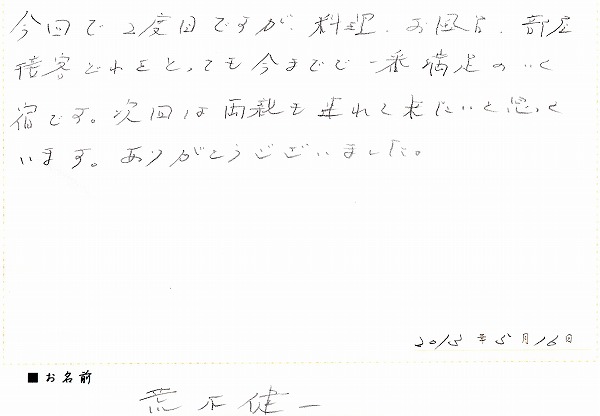 今回で2度目ですが、料理、お風呂、部屋
接客どれをとっても今までで一番満足のいく
宿です。次回は両親も連れて来たいと思って
います。ありがとうございました。
2013年5月16日
■お名前
荒木健一